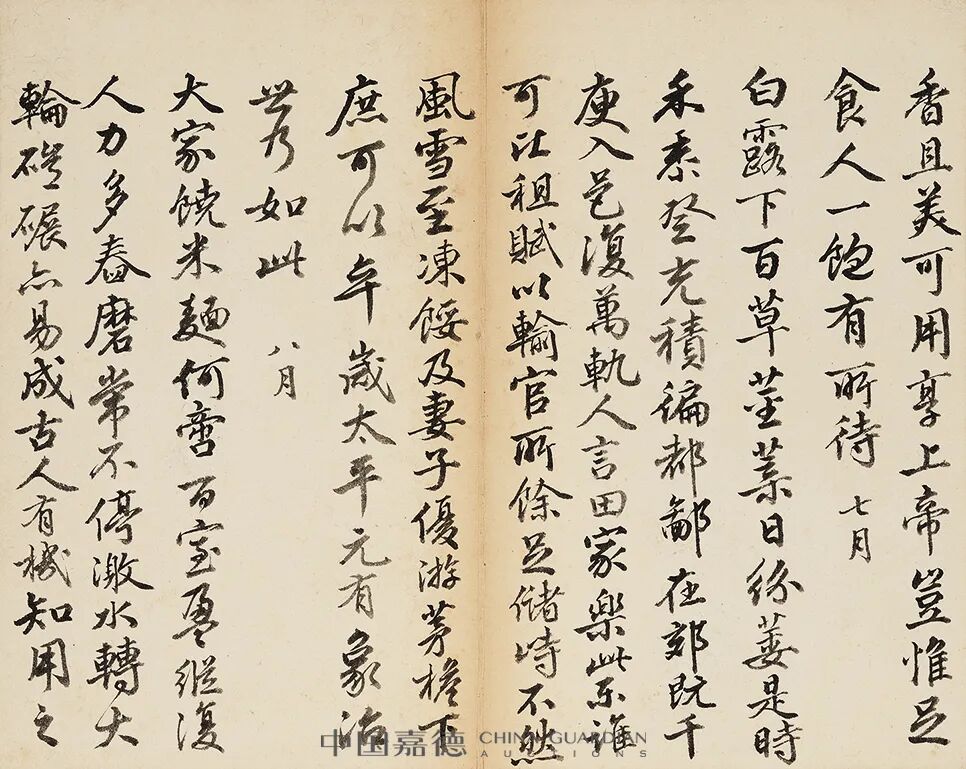 香且美可用享上帝豈惟足
食人一飽有所待 七月
白露下百草莖葉日紛萎是時
禾黍登充積徧都鄙在郊既千
庾入邑復萬軌人言田家樂此樂誰
可比租賦以輸官所餘足儲峙不然
風雪至凍餒及妻子優游茅檐下
庶可以卒歲太平元有象治
世乃如此 八月
大家饒米麵何啻百室盈縱復
人力多舂磨常不停激水轉大
輪磑碾亦易成古人有機知用之
中国嘉德 CHINA GUARDIAN
AUCTIONS